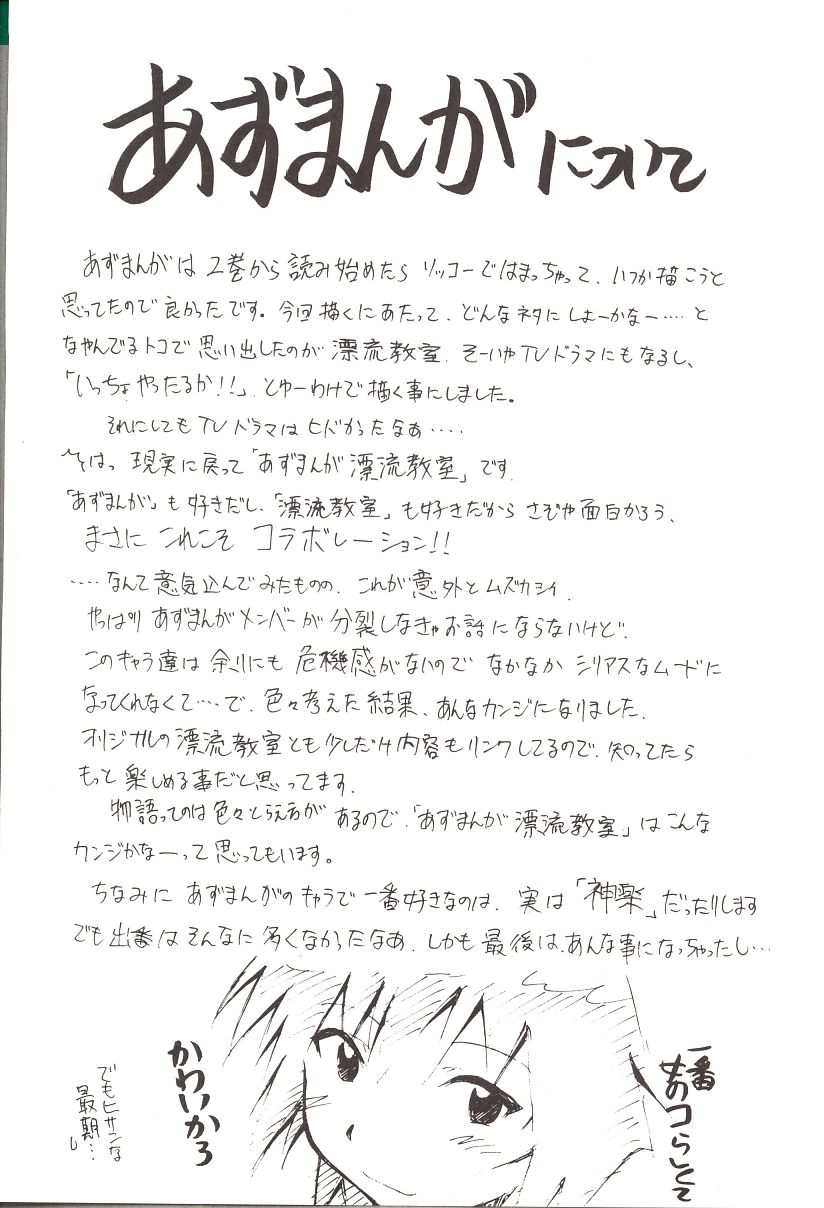 あずまんがについて
あずまんがは2巻から読み始めたら ソッコーではまっちゃって、いつか描こうと
思ってたので良かったです。今回描くにあたって、どんなネタにしよーかなー‥‥と
なやんでるトコで思い出したのが漂流教室、そーいやTVドラマにもなるし、
「いっちょやったるか!!」、とゆーわけで描く事にしました。
それにしてもTVドラマはヒドかったなぁ‥‥
現実に戻って「あずまんが漂流教室」です.
「あずまんが」も好きだし、「漂流教室」も好きだからさぞや面白かろう、
まさに これこそ コラボレーション!!
‥‥なんて意気込んでみたものの、これが意外とムズカシイ.
やっぱりあずまんがメンバーが分裂しなきゃお話にならないけど、
このキャラ達は余りにも危機感がないので なかなか シリアスなムードに
なってくれなくて‥‥で、色々考えた結果、あんなカンジになりました.
オリジナルの漂流教室とも少しだけ内容もリンクしてるので、知ってたら
もっと楽しめる事だと思ってます.
物語ってのは色々とらえ方があるので、「あずまんが漂流教室」はこんな
カンジかなーって思ってもいます。
ちなみに あずまんがのキャラで一番好きなのは、実は「神楽」だったりします
でも出番はそんなに多くなかったなあ、しかも最後は、あんな事になっちゃったし…
一番
女のコらしくて
かわいかろ
でもヒサンな
最期…